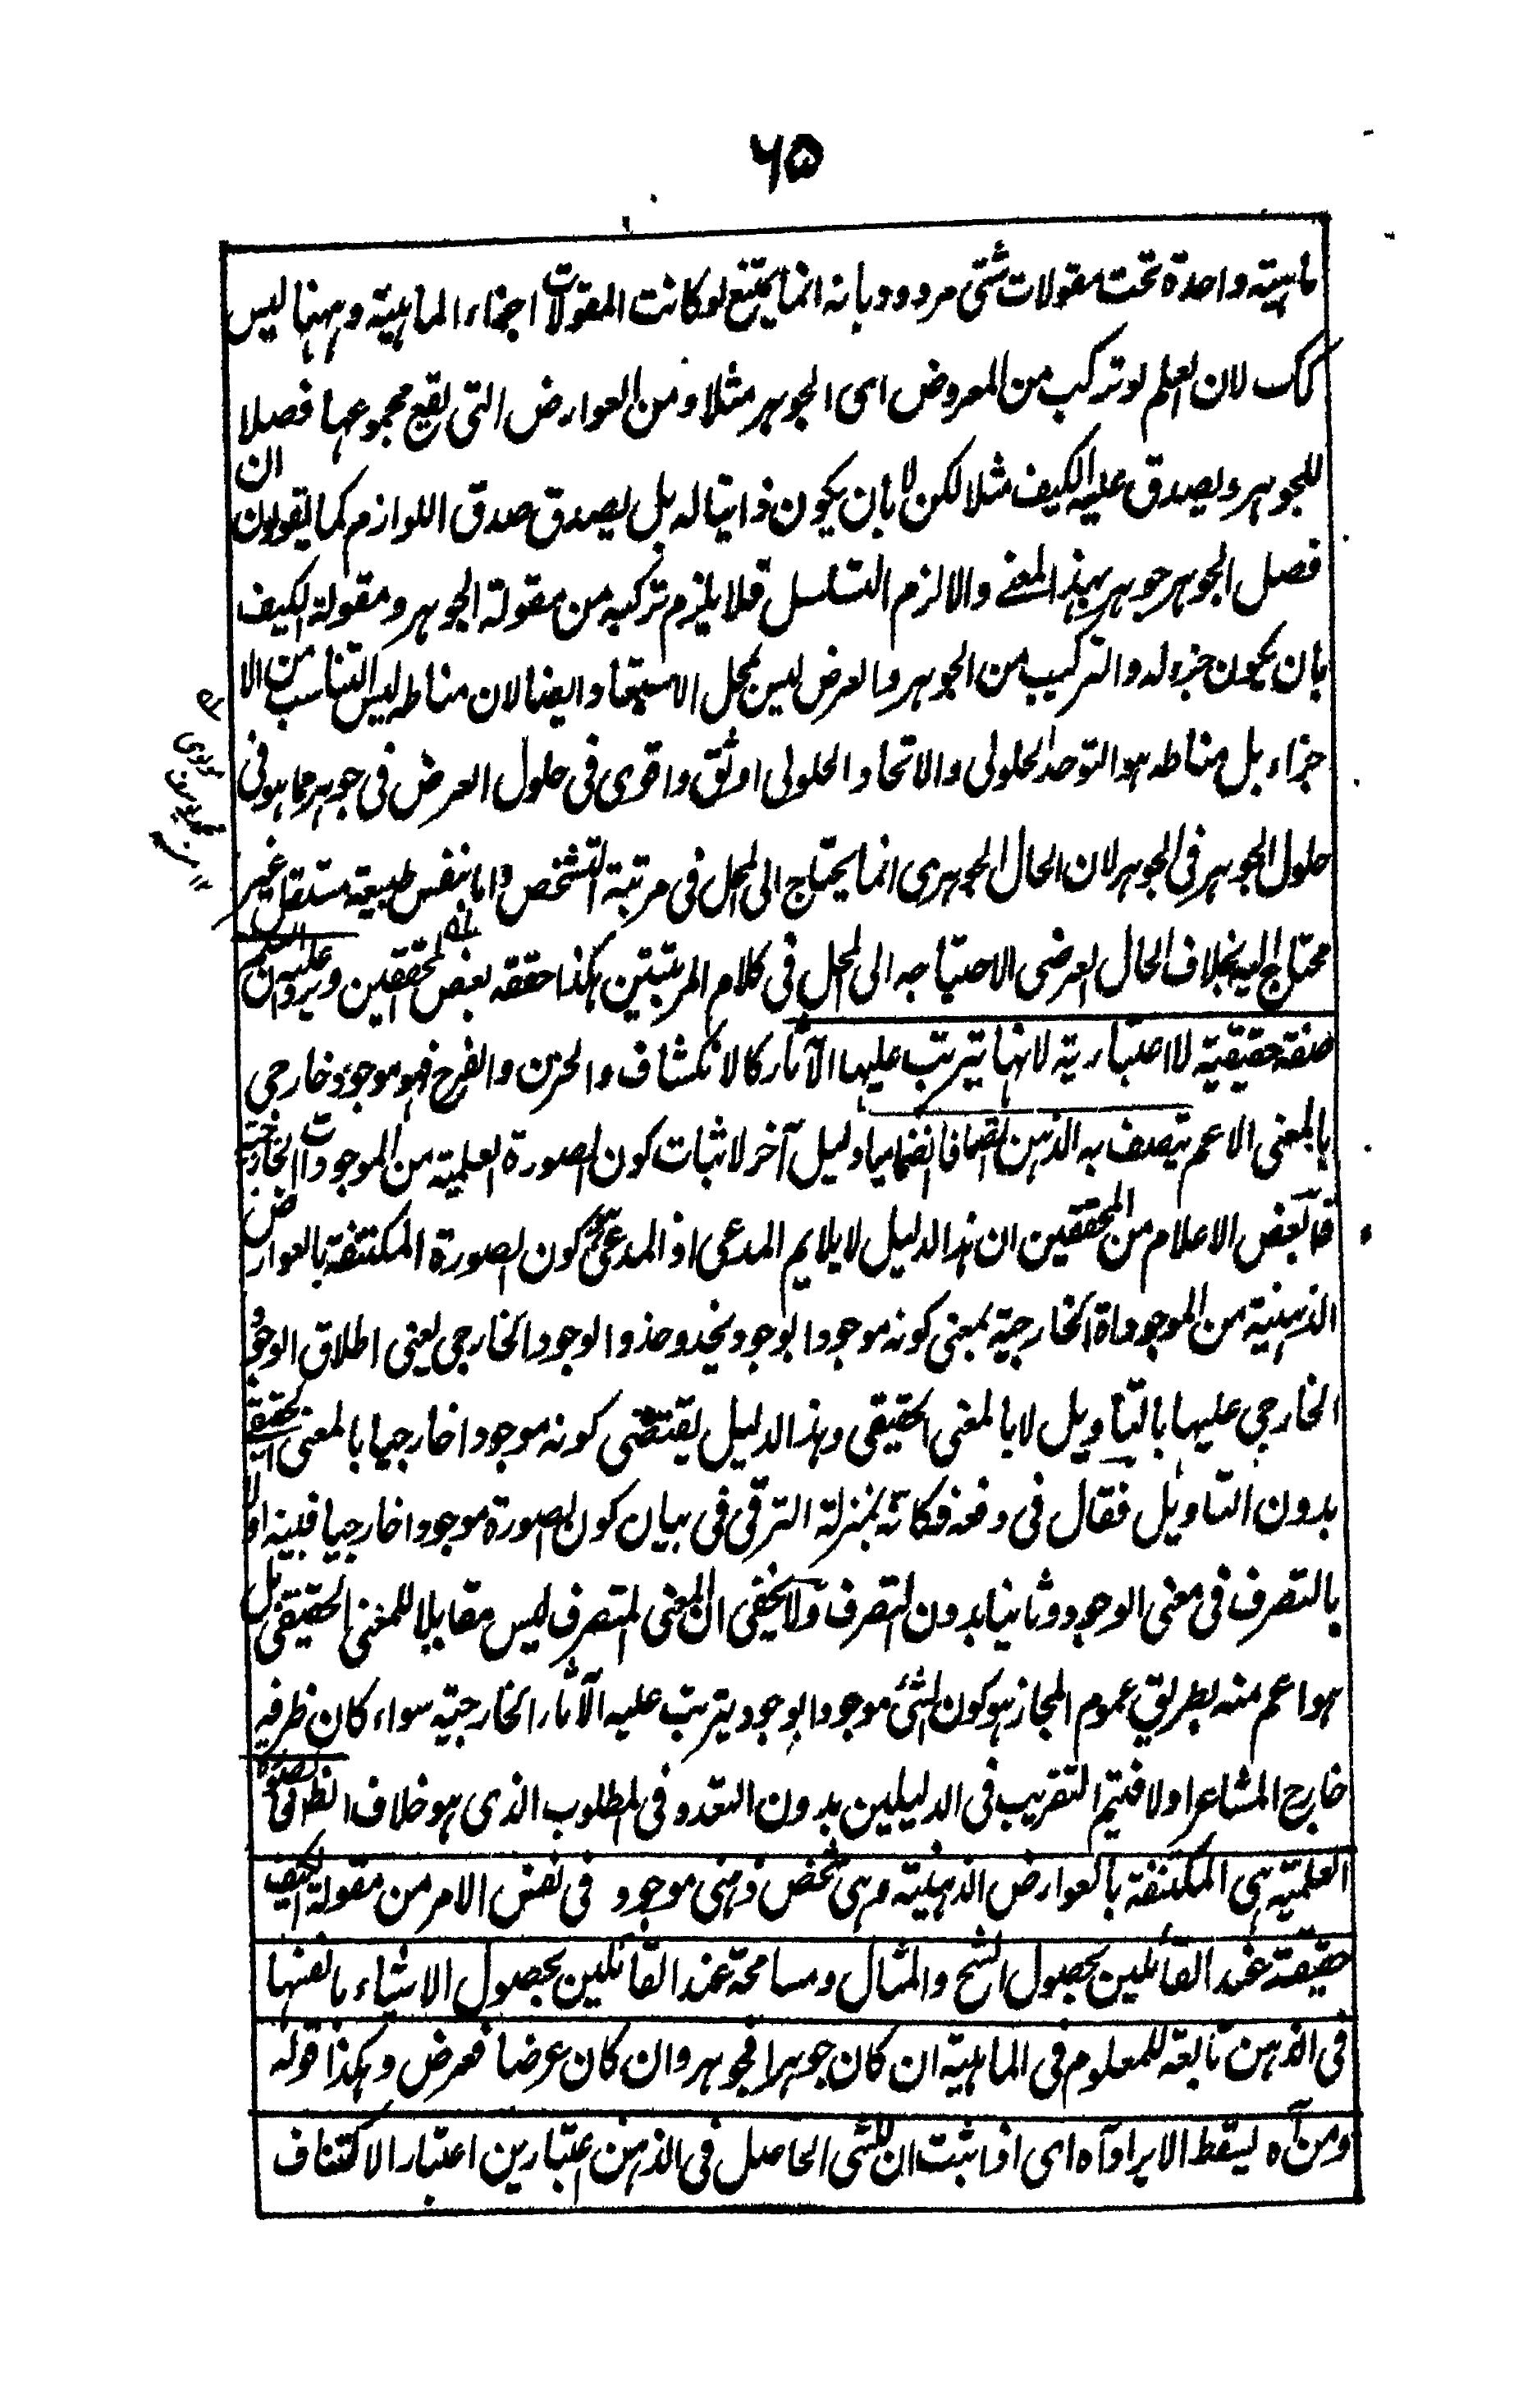 ۶۵
ماهية واحدة تحت مقولات شتى مردود بانه انما يمتنع لو كانت المقولات اجزاء الماهية وههنا ليس
كك لان العلم لو تركب من المعروض اى الجوهر مثلا ومن العوارض التى يقع مجموعها فصلا
للجوهر ويصدق عليه الكيف مثلا لكن لا بان يكون ذاتيا له بل يصدق صدق اللوازم كما يقولون ان
فصل الجوهر جوهر بهذا المعنے والا لزم التسلسل فلا يلزم تركبه من مقولة الجوهر ومقولة الكيف
بان يكون جزء له والتركيب من الجوهر والعرض ليس بمحل الاستبعاد ايضا لان مناطه ليس التناسب من الا
جزاء بل مناطه هو التوحد الحلولى والاتحاد الحلولى اوثق واقوى فى حلول العرض فى جوهر مما هو فى
حلول الجوهر فى الجوهر لان الحال الجوهرى انما يحتاج الى المحل فى مرتبة التشخص واما بنفس طبيعة مستقل غير
محتاج اليه بخلاف الحال العرضى الاحتياجه الى المحل فى كلام المرتبتين هكذا حققه بعض المحققين ويرد عليه ان العلم
صفة حقيقية لا اعتبارية لانها يترتب عليها الآثار كالانكشاف والحزن والفرح فهو موجود خارجى
بالمعنى الاعم يتصف به الذهن اتصافا انضماميا دليل آخر لاثبات كون الصورة العلمية من الموجودات الخارجية
قال بعض الاعلام من المحققين ان هذا الدليل لا يلايم المدعى اذ المدعى كون الصورة المكتنفة بالعوارض
الذهنية من الموجوداة الخارجية بمعنى كونه موجودا بوجود يحذو حذو الوجود الخارجى يعنى اطلاق الوجود
الخارجى عليها بالتاويل لا بالمعنى الحقيقى وهذا الدليل يقتضى كونه موجودا خارجيا بالمعنى الحقيقے
بدون التاويل فقال فى دفعه فكانه بمنزلة الترقى فى بيان كون الصورة موجودا خارجيا فبينه اولا
بالتصرف فى معنى الوجود وثانيا بدون التصرف ولا يخفى ان المعنى المتصرف ليس مقابلا للمعنى الحقيقى بل
هو اعم منه بطريق عموم المجاز هو كون الشئ موجودا بوجود يترتب عليه الآثار الخارجية سواء كان ظرفه
خارج المشاعر اولا فتيم التقريب فى الدليلين بدون التعدد فى المطلوب الذى هو خلاف الظ
العلمية هى المكتنفة بالعوارض الذهنية وهى شخص ذهنى موجود فى نفس الامر من مقولة الكيف
حقيقة عند القائلين بحصول الشبح والمثال ومسامحة عند القائلين بحصول الاشياء بانفسها
فى الذهن تابعة للمعلوم فى الماهية ان كان جوهرا فجوهر وان كان عرضا فعرض وهكذا قوله
ومن آه ليسقط الايراد آه اى اذا ثبت ان للشى الحاصل فى الذهن اعتبارين اعتبار الاكتناف